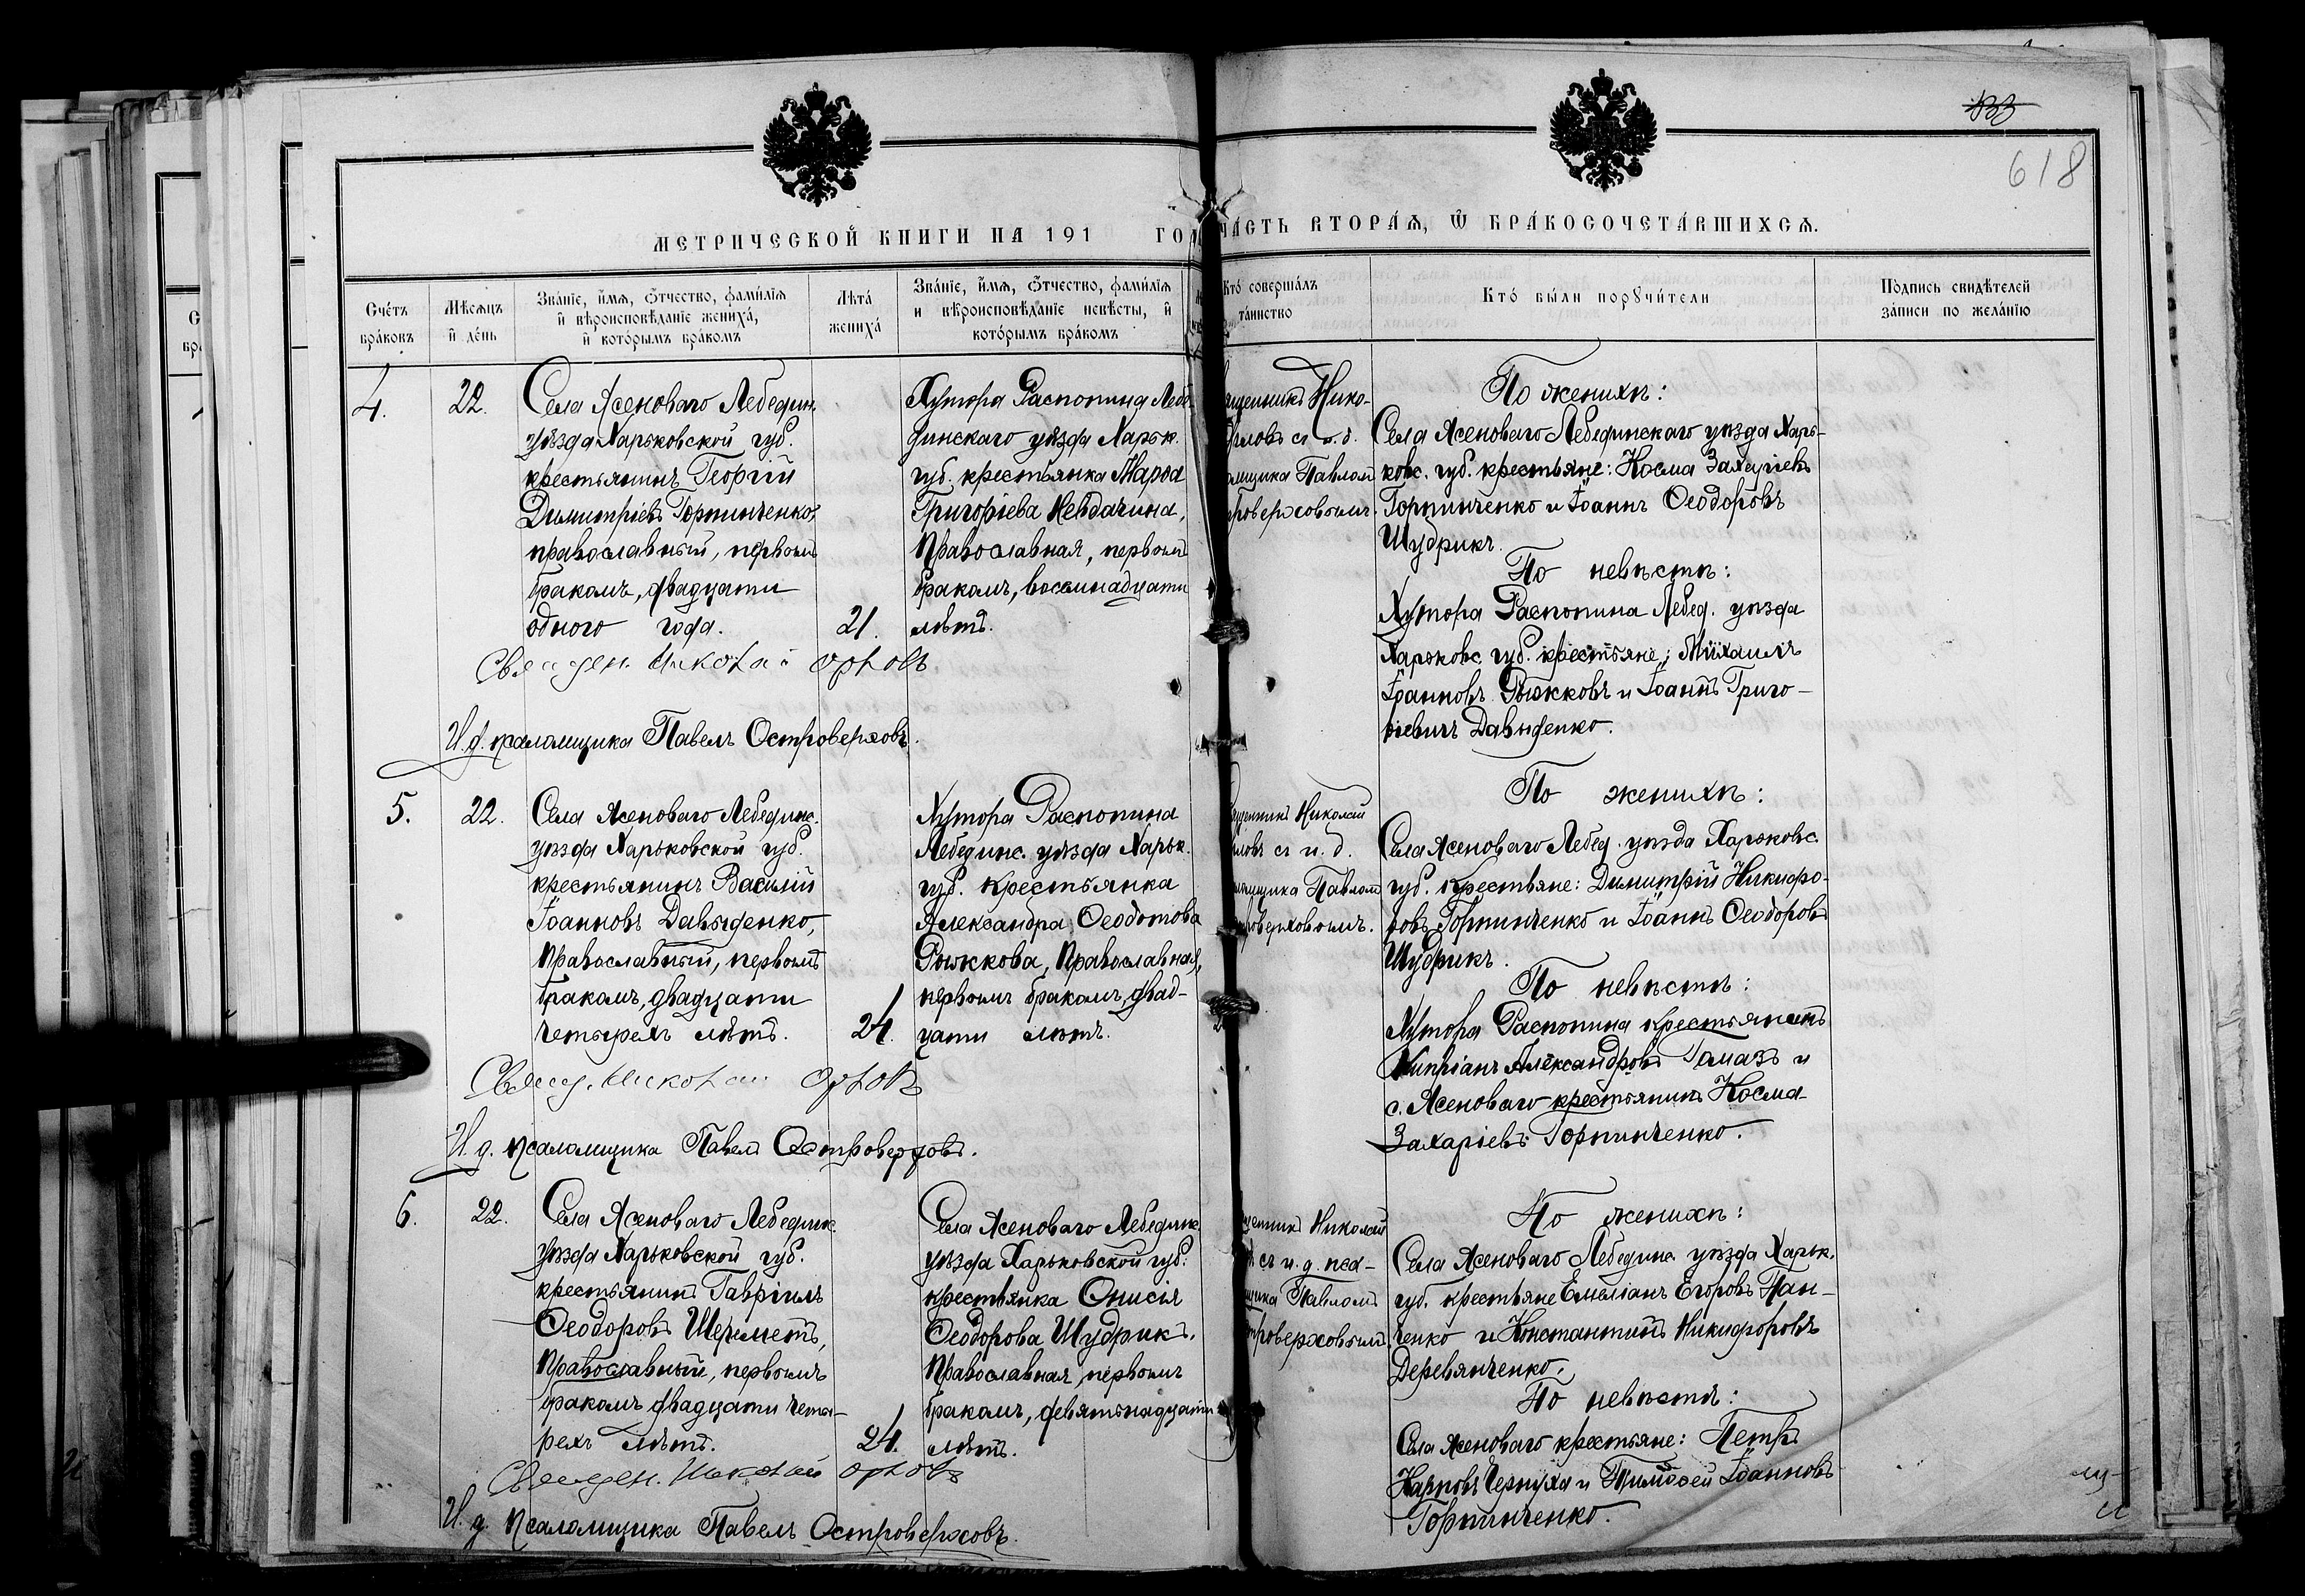 133
618
МЕТРИЧЕСКОЙ КНИГИ НА 191 ГОД
ЧАСТЬ ВТОРАѦ, Ѿ БРАКОСОЧЕТАВШИХСѦ.
Счетъ браковъ
Мѣсѧцъ и день
Званіе, имѧ, ѿчество, фамиліѧ и вѣроисповѣданіе жениха, и которымъ бракомъ
Лѣта жениха
Званіе, имѧ, ѿчество, фамиліѧ и вѣроисповѣданіе невѣсты, и которымъ бракомъ
Кто совершалъ таинство
Кто были порꙋчители
Подпись свидѣтелей записи по желанію
4.
22.
Села Ясеноваго Лебедин.
уѣзда Харьковской губ.
крестьянинъ Георгій
Димитріевъ Горпинченко,
православный, первымъ
бракомъ, двадцати
одного года.
21.
Хутора Распопина Лебе-
динскаго уѣзда Харьк.
губ. крестьянка
Григоріева
Православная, первымъ
бракомъ, восьмнадцати
лѣтъ.
Священ. Николай Орловъ
И. д. псаломщика Павелъ Островерховъ.
ященникъ Нико-
рловъ съ и. д.
омщика Павломъ
роверховымъ.
По женихѣ:
Села Ясеноваго Лебединскаго уѣзда Харь-
ковс. губ. крестьяне: Косма Захаріевъ
Горпинченко и Іоаннъ Ѳеодоровъ
Шудрикъ.
По невѣстѣ:
Хутора Распопина Лебед. уѣзда
Харьковс. губ. крестьяне: Михаилъ
Іоанновъ Рыжковъ и Іоаннъ Григо-
ріевичъ Давыденко.
5.
22.
Села Ясеноваго Лебединс.
уѣзда Харьковской губ.
крестьянинъ Василій
Іоанновъ Давыденко,
Православный, первымъ
бракомъ, двадцати
четырехъ лѣтъ.
24.
Хутора Распопина
Лебединс. уѣзда Харьк.
губ. крестьянка
Александра Ѳеодотова
Рыжкова, Православная,
первымъ бракомъ, двад-
цати лѣтъ.
Свящ. Николай Орловъ
И. д. псаломщика Павелъ Островерховъ.
щенникъ Николай
ловъ съ и. д.
омщика Павломъ
роверховымъ.
По женихѣ:
Села Ясеноваго Лебед. уѣзда Харьковс.
губ. крестьяне: Димитрій Никифо-
ровъ Горпинченко и Іоаннъ Ѳеодоровъ
Шудрикъ.
По невѣстѣ:
Хутора Распопина крестьянинъ
Кипріанъ Александровъ Гамазъ и
с. Ясеноваго крестьянинъ Косма
Захаріевъ Горпинченко.
6.
22.
Села Ясеноваго Лебединс.
уѣзда Харьковской губ.
крестьянинъ Гавріилъ
Ѳеодоровъ Шереметъ,
Православный, первымъ
бракомъ двадцати четы-
рехъ лѣтъ.
24.
Села Ясеноваго Лебединс.
уѣзда Харьковской губ.
крестьянка Онисія
Ѳеодорова Шудрикъ,
Православная, первымъ
бракомъ, девятьнадцати
лѣтъ.
Священ. Николай Орловъ
И. д. Псаломщика Павелъ Островерховъ.
щенникъ Николай
съ и. д. пса-
щика Павломъ
троверховымъ.
По женихѣ:
Села Ясеноваго Лебединс. уѣзда Харьк.
губ. крестьяне Емеліанъ Егоровъ Пан-
ченко и Константинъ Никифоровъ
Деревянченко.
По невѣстѣ:
Села Ясеноваго крестьяне: Петръ
Карповъ Чернуха и Тимоѳей Іоанновъ
Горпинченко.